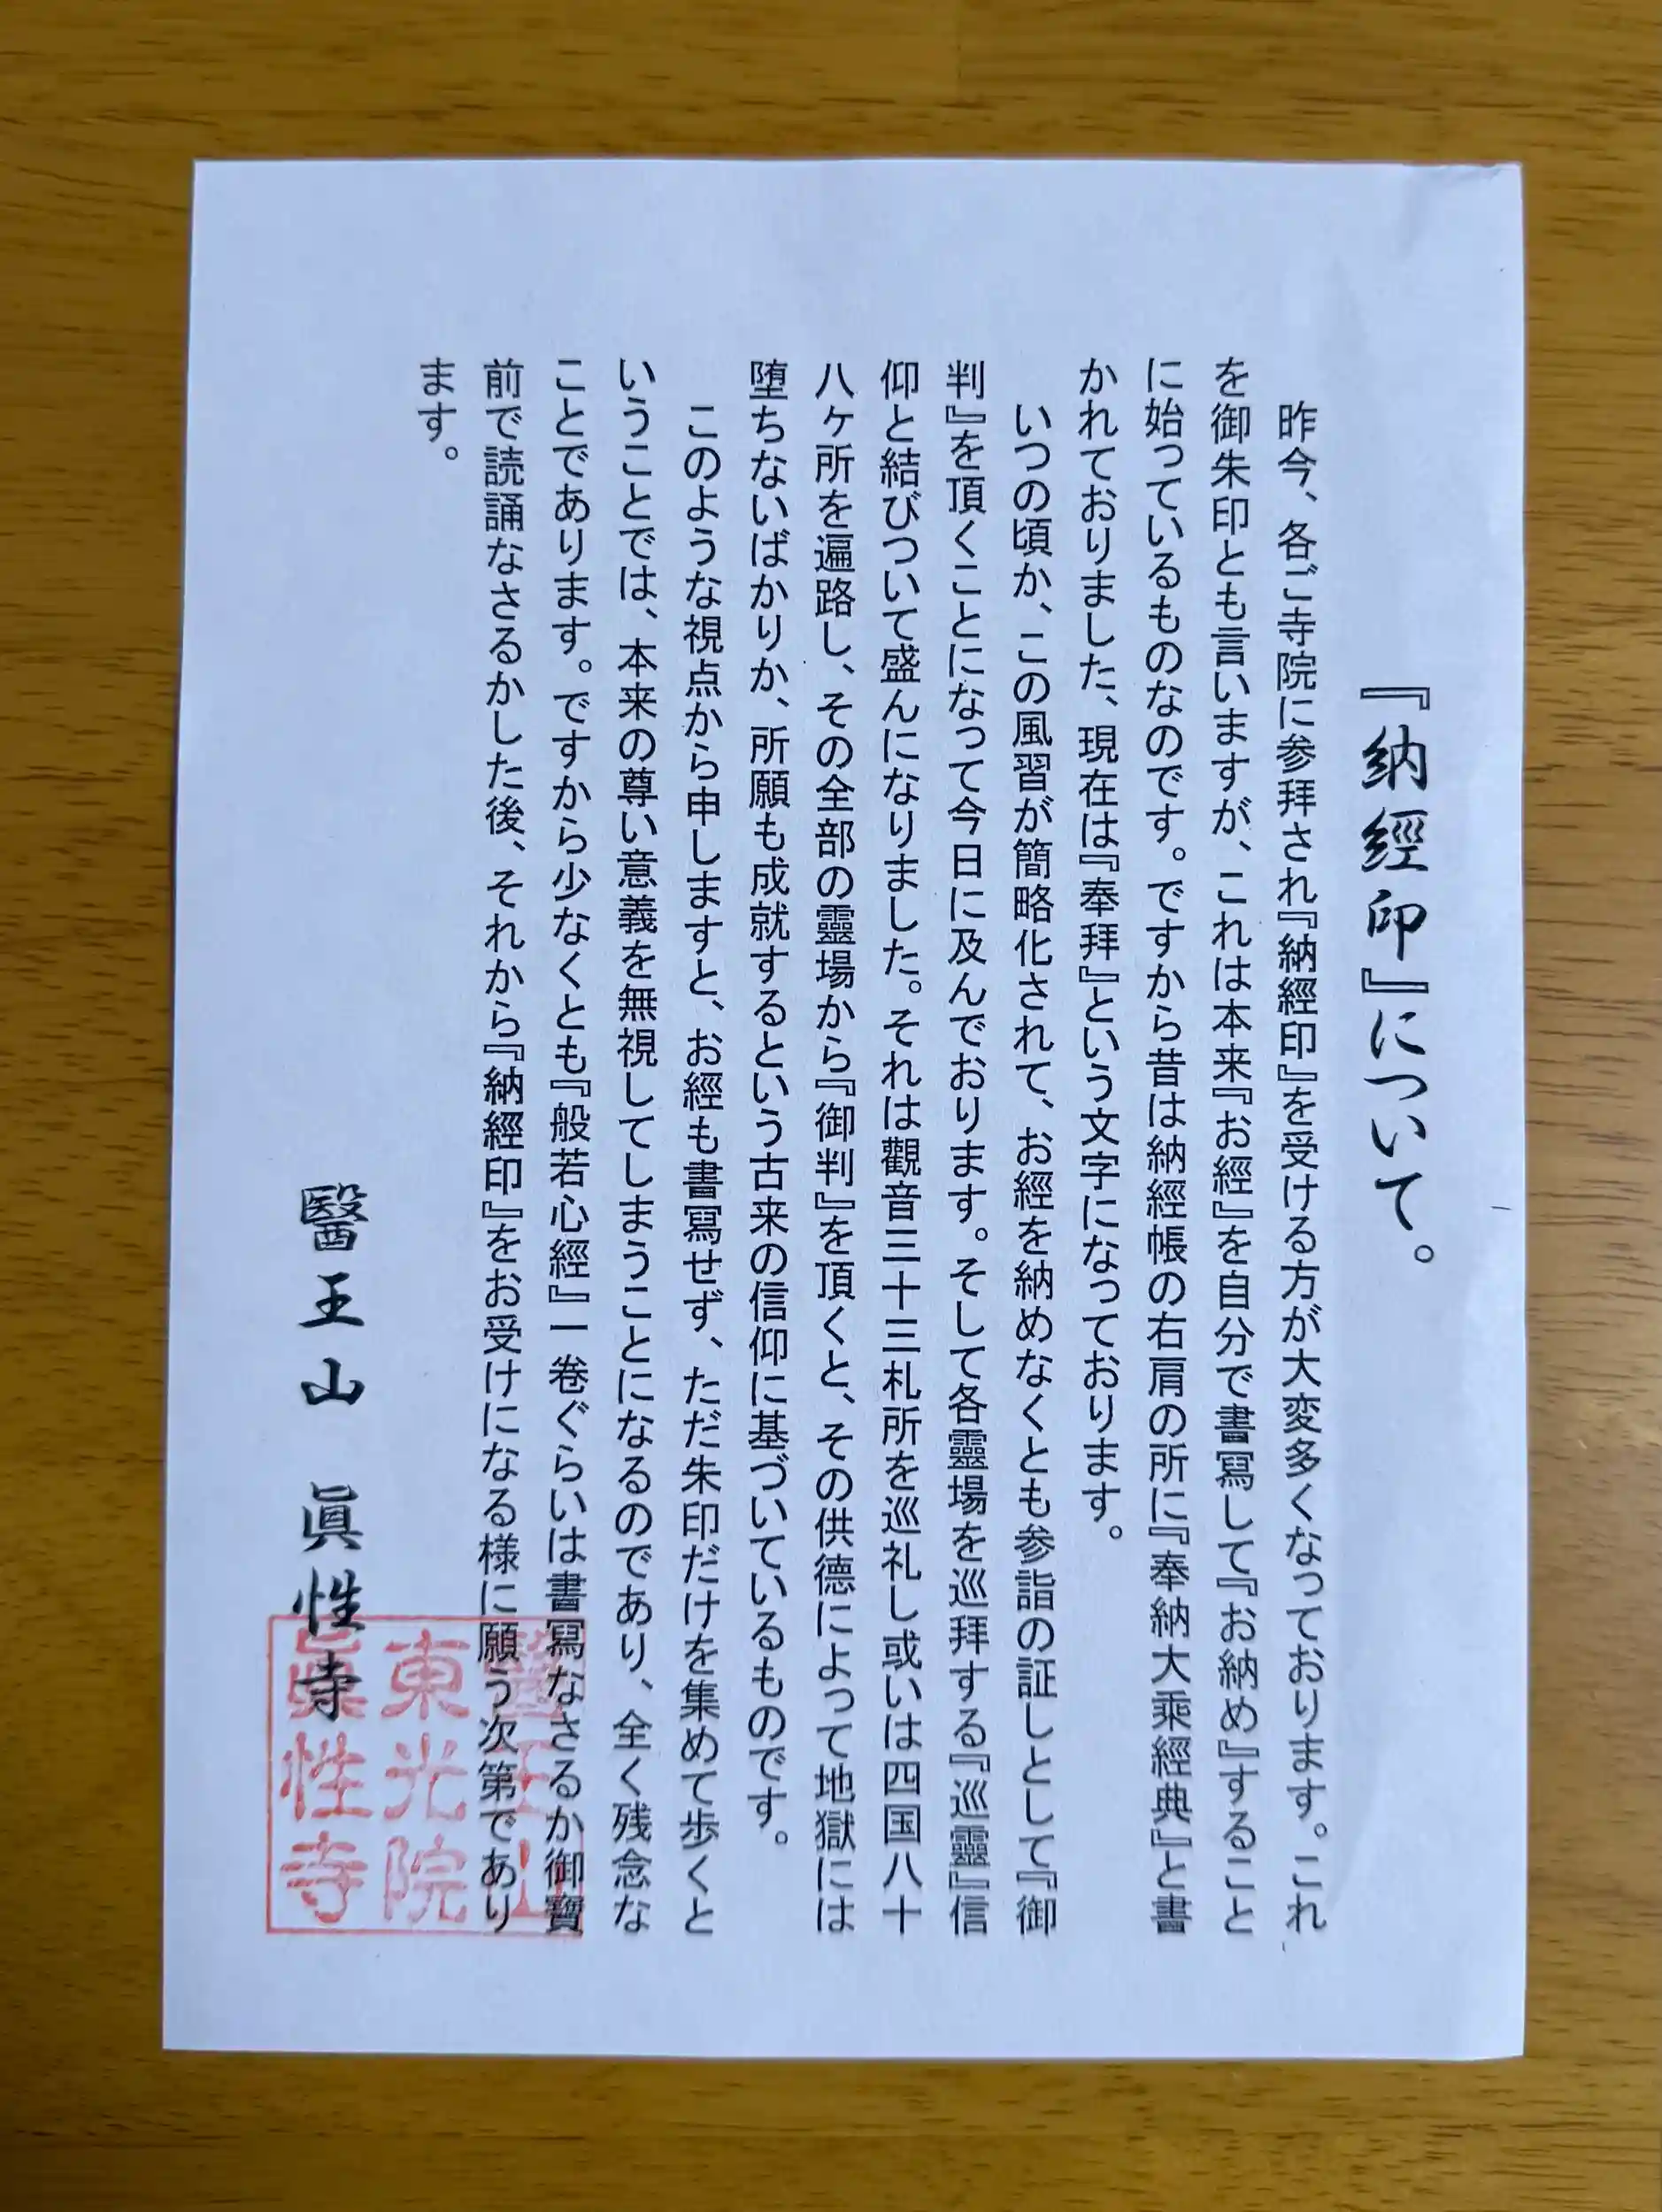 『納經印』について。
昨今、各ご寺院に参拝され『納經印』を受ける方が大変多くなっております。これ
を御朱印とも言いますが、これは本来『お經』を自分で書寫して『お納め』すること
に始っているものなのです。ですから昔は納經帳の右肩の所に『奉納大乘經典』と書
かれておりました、現在は『奉拜』という文字になっております。
いつの頃か、この風習が簡略化されて、お經を納めなくとも参詣の証しとして『御
判』を頂くことになって今日に及んでおります。そして各靈場を巡拜する『巡靈』信
仰と結びついて盛んになりました。それは觀音三十三札所を巡礼し或いは四国八十
八ヶ所を遍路し、その全部の靈場から『御判』を頂くと、その供德によって地獄には
堕ちないばかりか、所願も成就するという古来の信仰に基づいているものです。
このような視点から申しますと、お經も書寫せず、ただ朱印だけを集めて歩くと
いうことでは、本来の尊い意義を無視してしまうことになるのであり、全く残念な
ことであります。ですから少なくとも『般若心經』一巻ぐらいは書寫なさるか御寶
前で読誦なさるかした後、それから『納經印』をお受けになる様に願う次第であり
ます。
醫王山 眞性寺
醫王山
東光院
眞性寺